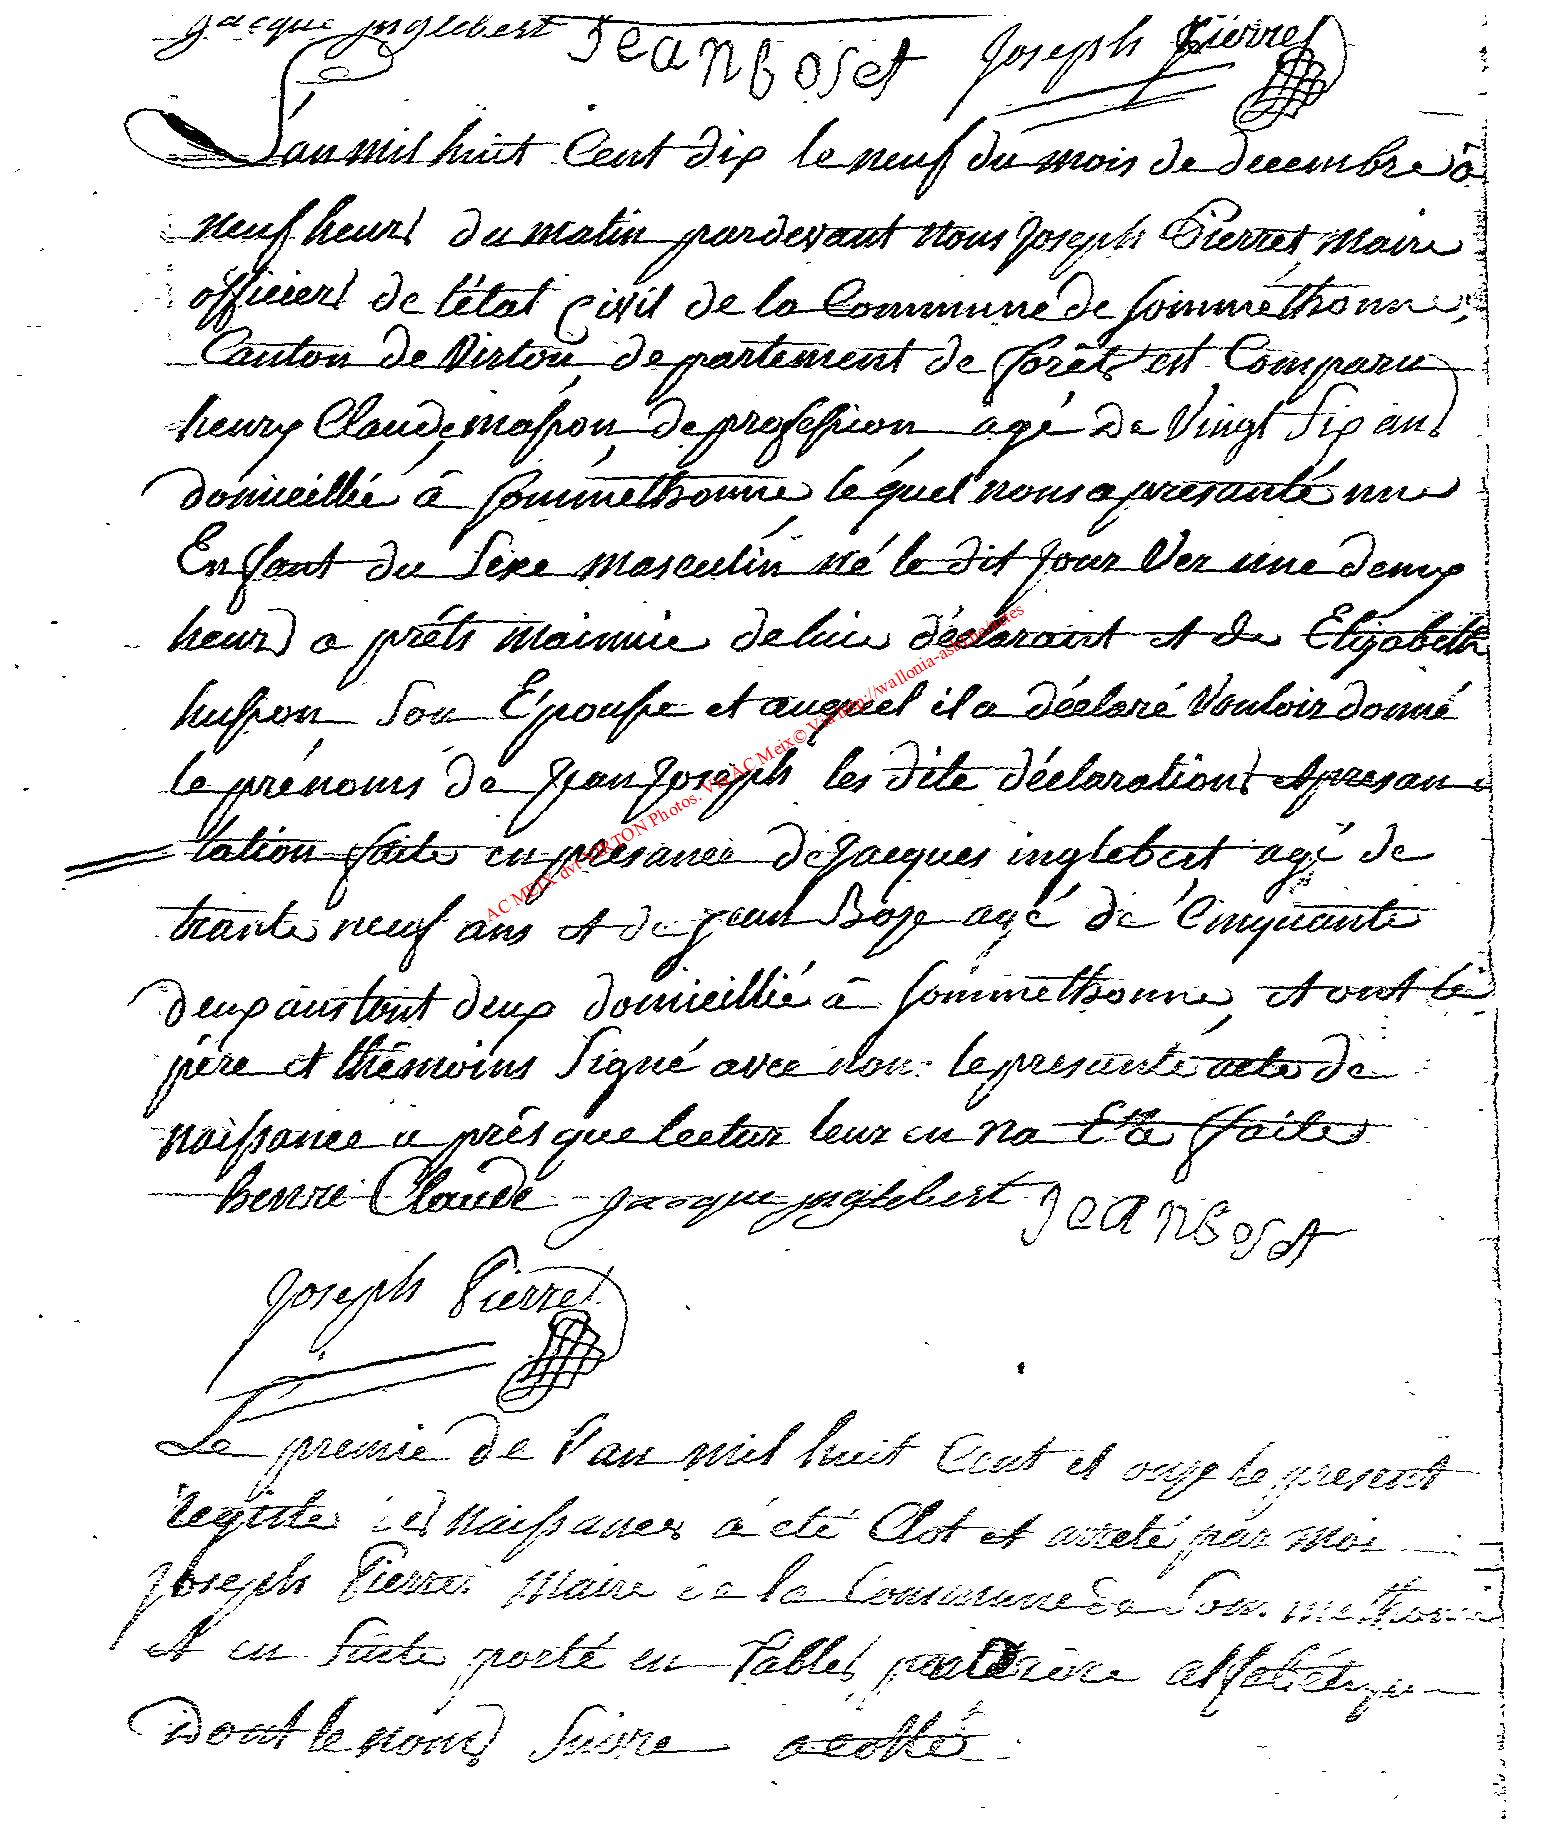 Jacque inglebert JEANBOSET Joseph Pierret
L'an mil huit Cent dix le neuf du mois de decembre à
neuf heurs du matin pardevant nous Joseph Pierret, Maire
officiers de l'état Civil de la Commune de Somméthonne,
Canton de Virton, departement de forêts est Comparu
henry Claude, masson, de profession agé de Vingt Six ans
domicillié à Sommethonne le quel nous a presanté une
Enfant du Sexe masculin né le dit Jour Ver une deux
heurs a prêts mainuie de luie déclarant et de Elizabeth
husson Son Epousse et auquel il a déclaré Vouloir donné
le prénoms de Jean Joseph les dite déclarations et presan
tation faite en presance de Jacques inglebert agé de
trante neuf ans et de Jean Boze agé de Cinquante
deux ans tout deux domicillié à Sommethonne, et ont le
père et thémoins Signé avec nous le presante acte de
naissance a près que lectur leur en na Eté faite
henri Claude Jacque inglebert JEANBOSET
Joseph Pierret
Le premie de l'an mil huit Cent et onze le present
registe des naissances à été Clot et arreté par moi
Joseph Pierret Maire de la Commune de Sommethonne
et en Suite porté en Tables alfabétique
Dont le noms Suivre acotté
AC MEIX dvt VIRTON Photos: AC Meix© Via http://wallonia-asbl.be/actes